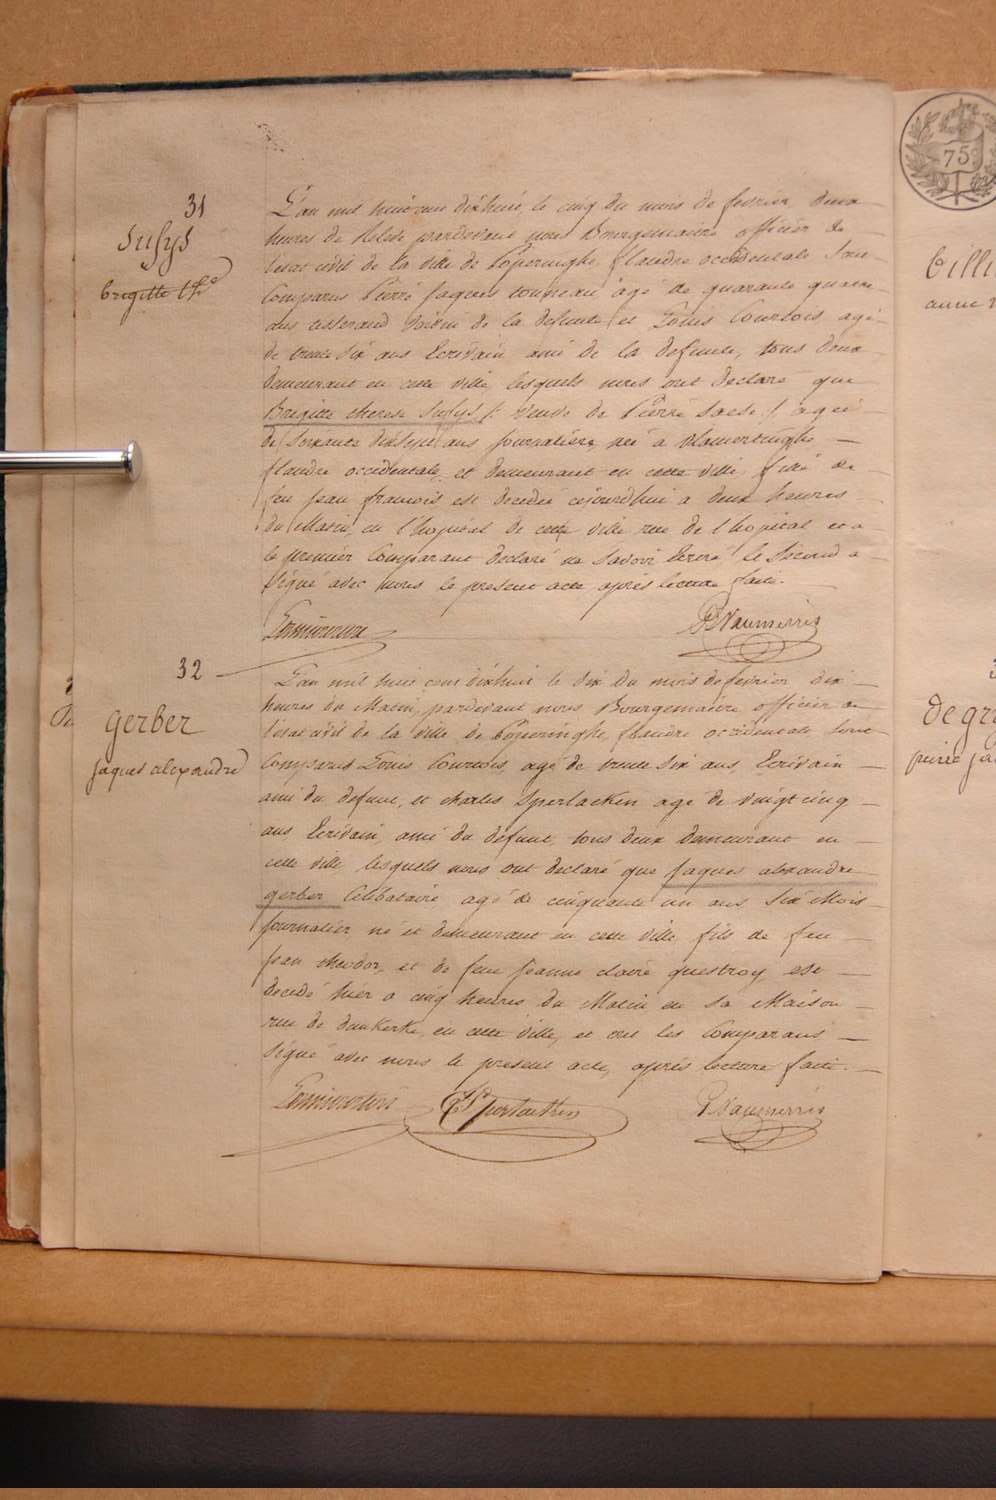 31
Susys
bregitte thse
L'an mil huit cent dixhuit, le cinq du mois de fevrier, deux
heures de Relevée pardevant nous Bourgemaitre officier de
l'etat civil de la ville de Poperinghe, flandre occidentale Sont
Comparus Pierre Jaques toupreau, agé de quarante quatre
ans tisserand voisin de la defunte, et Louis Courtois agé
de trente six ans Ecrivain ami de la defunte, tous deux
demeurant en cette ville lesquels nous ont declaré que
Brigitte therese Susys /: veuve de Pierre :/ agée
de Soixante dixsept ans journalière, née à vlamertinghe
flandre occidentale, et demeurant en cette ville, fille de
feu jean francois, est decedée cejourdhui a deux heures
du Matin, en l'hopital de cette ville rue de l'hopital et a
le premier Comparant declaré ne Savoir Ecrire le Second a
Signé avec nous le present acte après lecture faite.
PVaumerris
32
gerber
jaques alexandre
L'an mil huit cent dixhuit le six du mois de fevrier dix
heures du Matin, pardevant nous Bourgemaitre officier de
l'etat civil de la ville de Poperinghe, flandre occidentale sont
Comparus Louis Courtois, agé de trente six ans Ecrivain
ami du defunt, et charles Sperlacken agé de vingt cinq
ans, Ecrivain, ami du défunt, tous deux demeurant en
cette ville lesquels nous ont declaré que jaques alexandre
gerber Célibataire, agé de cinquante un ans six Mois
journalier né et demeurant en cette ville fils de feu
jean theodor, et de feue jeanne claire questroy, est
decedé hier a cinq heures du Matin en sa Maison
rue de dunkerke, en cette ville, et ont les Comparans
Signé avec nous le present acte, après lecture faite.
Sperlaecken
PVaumerris
75
degr